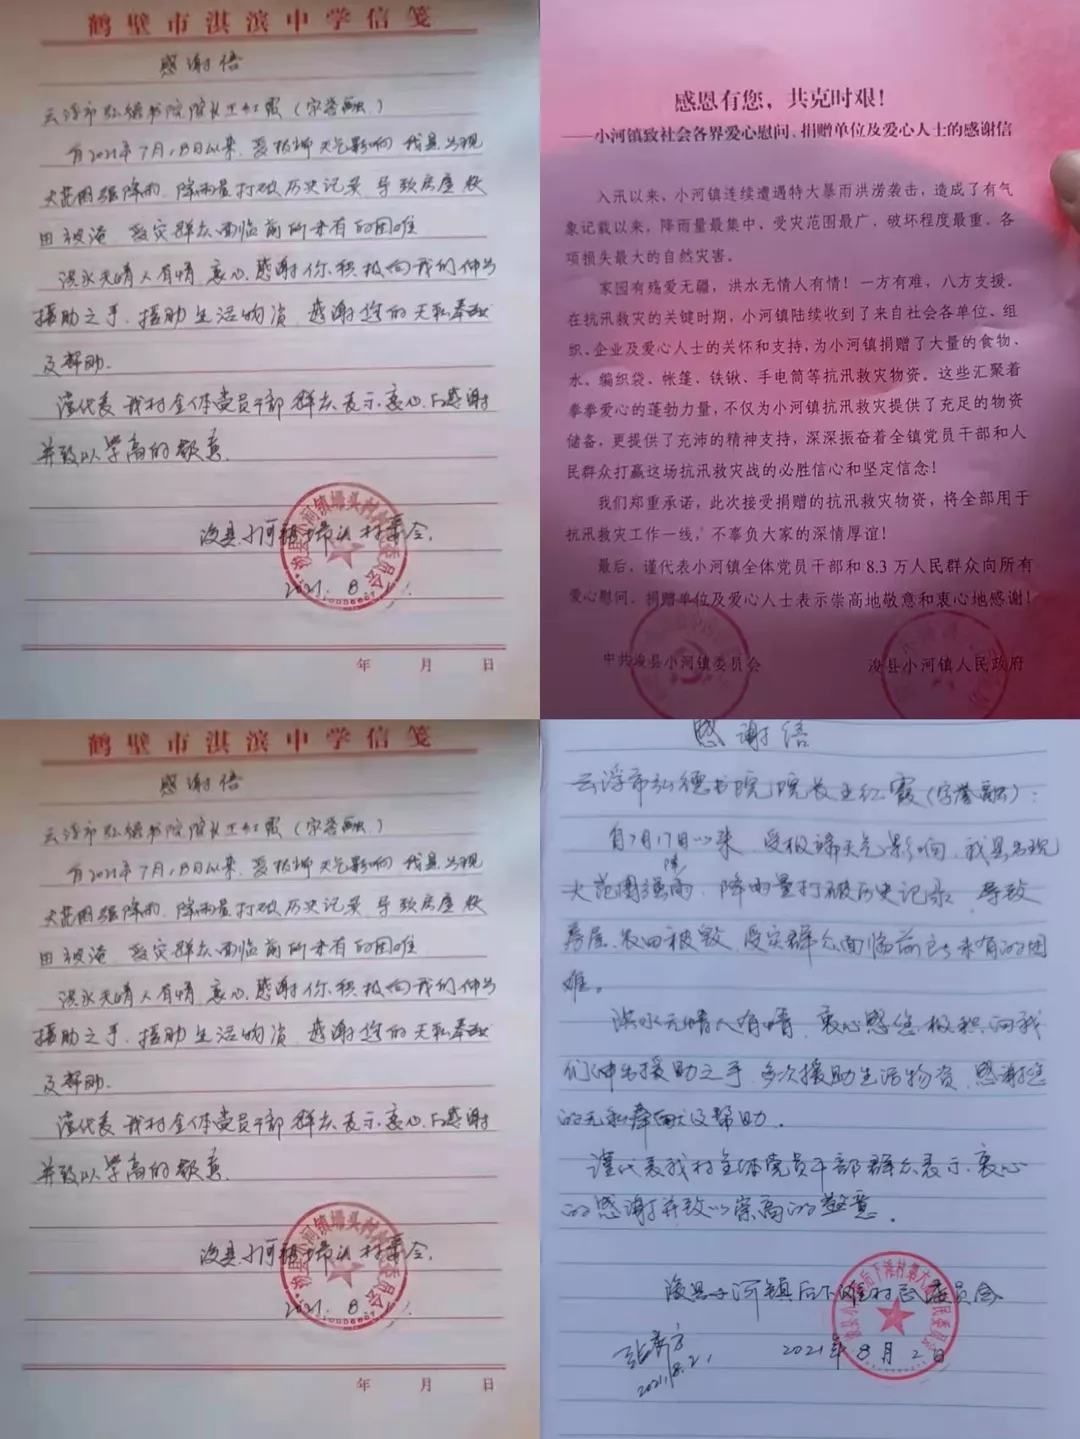 鹤壁市淇滨中学信笺
感谢信
云浮市弘德书院院长王红霞（字誉融）
自2021年7月18日以来，受极端天气影响 我县出现
大范围强降雨，降雨量打破历史记录，导致房屋 农
田被淹 受灾群众面临前所未有的困难
洪水无情人有情，衷心感谢你积极向我们伸出
援助之手，援助生活物资，感谢您的无私奉献
及帮助.
谨代表 我村全体党员干部 群众表示衷心的感谢
并致以崇高的敬意.
浚县小河镇埽头村委会.
2021. 8
年 月 日
感恩有您，共克时艰！
——小河镇致社会各界爱心慰问、捐赠单位及爱心人士的感谢信
入汛以来，小河镇连续遭遇特大暴雨洪涝袭击，造成了有气
象记载以来，降雨量最集中、受灾范围最广，破坏程度最重、各
项损失最大的自然灾害。
家园有殇爱无疆，洪水无情人有情！一方有难，八方支援。
在抗汛救灾的关键时期，小河镇陆续收到了来自社会各单位、组
织、企业及爱心人士的关怀和支持，为小河镇捐赠了大量的食物、
水、编织袋、帐篷、铁锹、手电筒等抗汛救灾物资。这些汇聚着
拳拳爱心的蓬勃力量，不仅为小河镇抗汛救灾提供了充足的物资
储备，更提供了充沛的精神支持，深深振奋着全镇党员干部和人
民群众打赢这场抗汛救灾战的必胜信心和坚定信念！
我们郑重承诺，此次接受捐赠的抗汛救灾物资，将全部用于
抗汛救灾工作一线，不辜负大家的深情厚谊！
最后，谨代表小河镇全体党员干部和 8.3 万人民群众向所有
爱心慰问、捐赠单位及爱心人士表示崇高地敬意和衷心地感谢！
中共浚县小河镇委员会 浚县小河镇人民政府
鹤壁市淇滨中学信笺
感谢信
云浮市弘德书院院长王红霞（字誉融）
自2021年7月18日以来，受极端天气影响 我县出现
大范围强降雨，降雨量打破历史记录，导致房屋 农
田被淹 受灾群众面临前所未有的困难
洪水无情人有情，衷心感谢你积极向我们伸出
援助之手，援助生活物资，感谢您的无私奉献
及帮助.
谨代表 我村全体党员干部 群众表示衷心的感谢
并致以崇高的敬意.
浚县小河镇埽头村委会.
2021. 8
年 月 日
感谢信
云浮市弘德书院院长王红霞（字誉融）：
自7月17日以来，受极端天气影响，我县出现
大范围强降雨，降雨量打破历史记录，导致
房屋、农田被毁，受灾群众面临前所未有的困
难。
洪水无情人有情，衷心感谢您积极向我
们伸出援助之手，多次援助生活物资，感谢您
的无私奉献及帮助.
谨代表我村全体党员干部群众表示衷心
的感谢并致以崇高的敬意.
浚县小河镇后下滩村总委员会
2021年8月2日
2021.8.2.